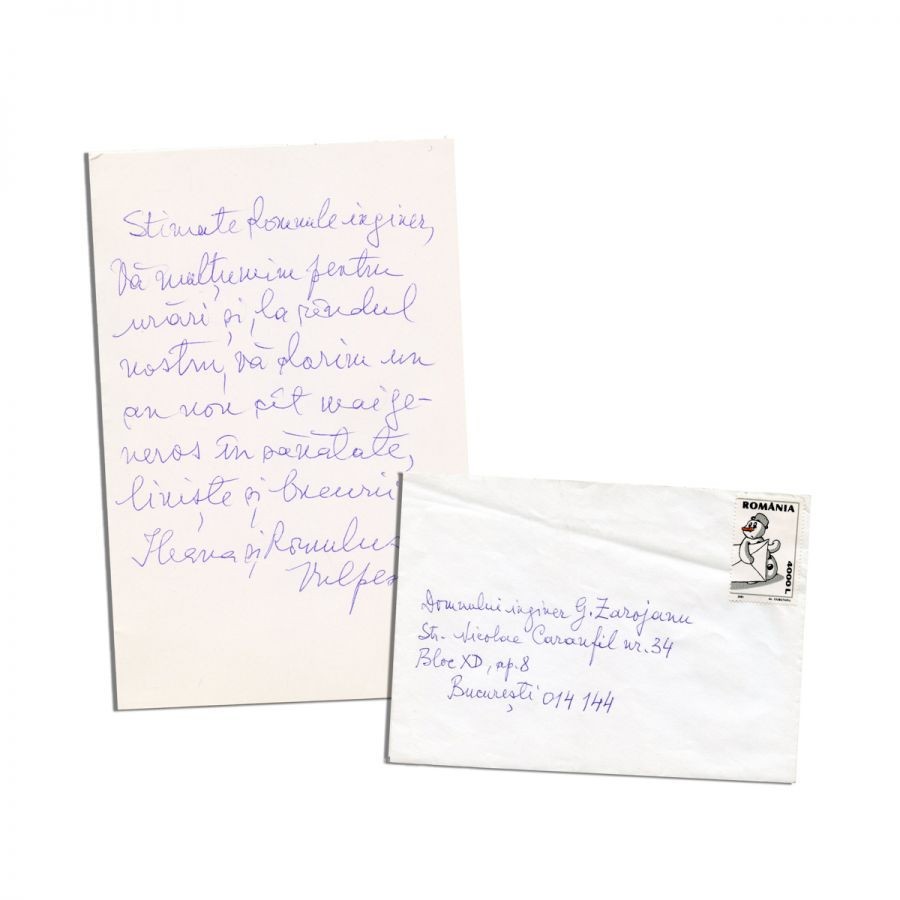 Stimate domnule inginer,
Vă mulțumim pentru
urări și, la rândul
nostru, vă dorim un
an nou cît mai ge-
neros în sănătate,
liniște și bucurii
Ileana și Romulus
Vulpes
ROMÂNIA
4000 L
Domnului inginer G. Zarojanu
Str. Nicolae Caranfil nr. 34
Bloc XD, ap. 8
București 014 144